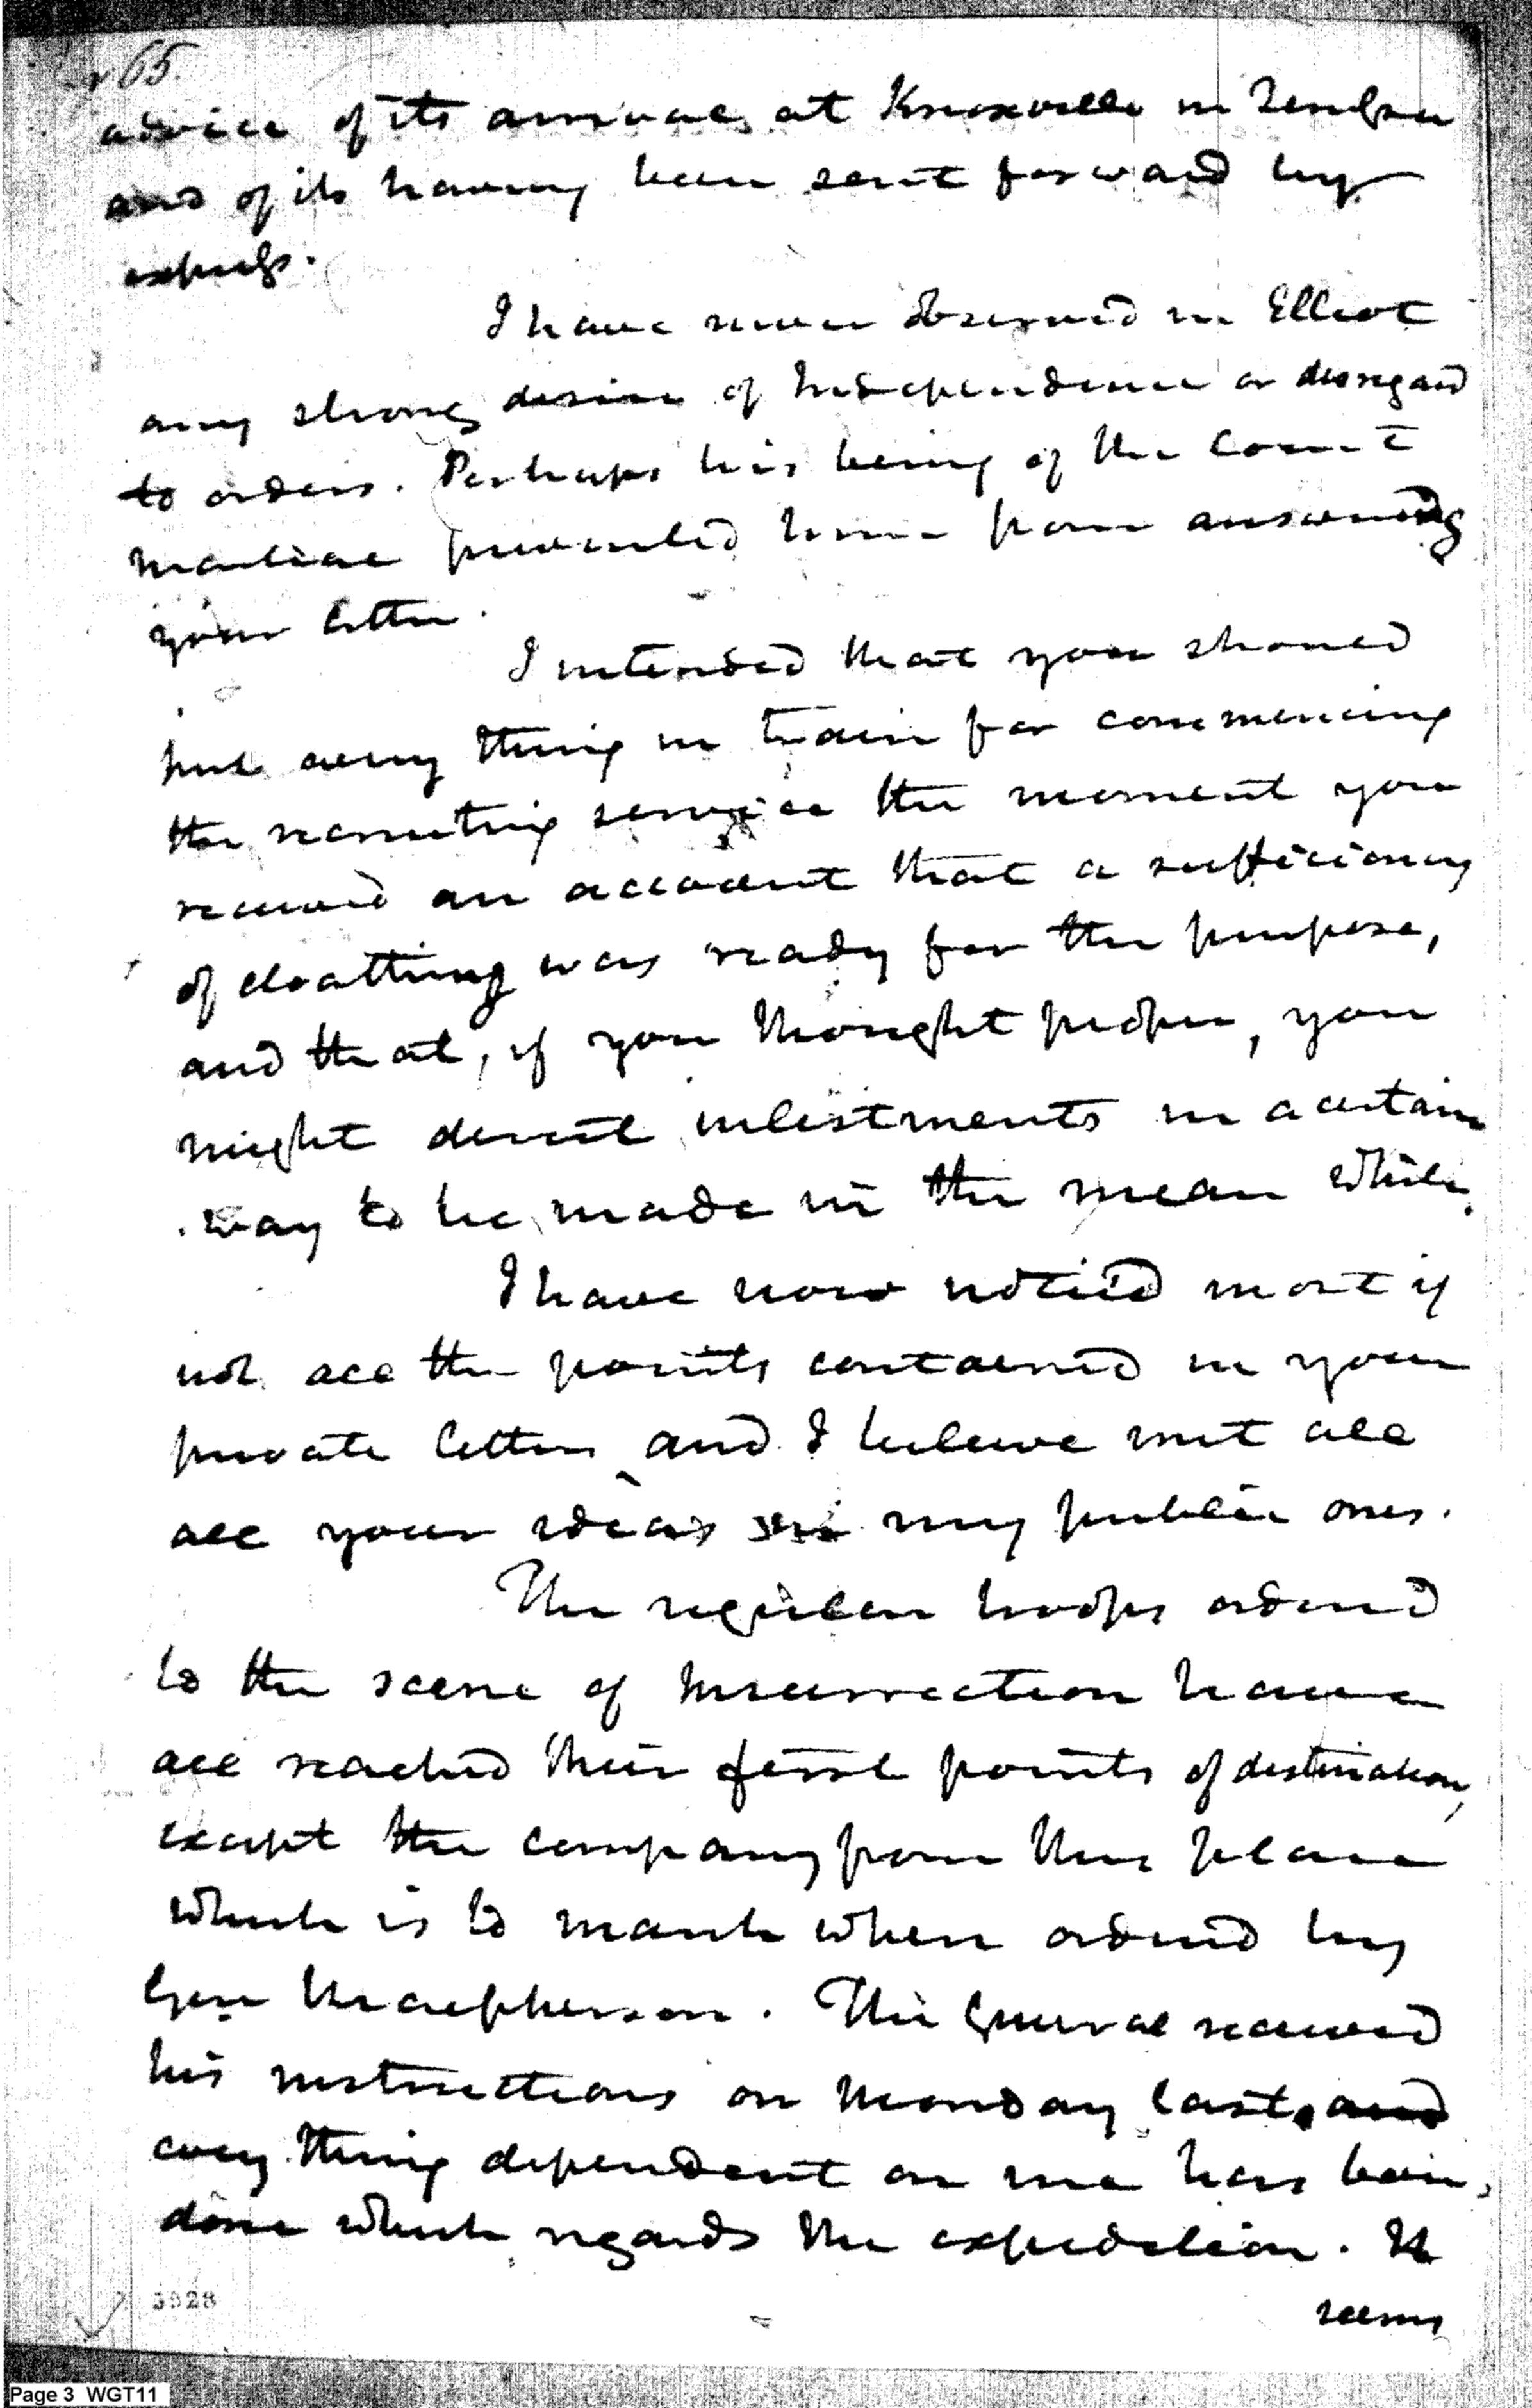 65.
advice of its arrival at Knoxville in Tenessee
and of its having been sent forward by
express.
I have never observed in Elliot
any strong desire of Independence or disregard
to orders. Perhaps his being of the Court
Martial prevented him from answering
your letter.
I intended that you should
put every thing in train for commencing
the recruiting service the moment you
received an account that a sufficiency
of cloathing was ready for the purpose,
and that, if you thought proper, you
might direct inlistments in a certain
way to be made in the mean while.
I have now noticed most if
not all the points contained in your
private letters and I believe met all
all your ideas in my public ones.
The regular troops ordered
to the scene of Insurrection have
all reached their first points of destination,
except the company from this place
which is to march when ordered by
Gen Macpherson. The General received
his instructions on Monday last, and
every thing dependent on me has been
done which regards the expedition. It
seems
3928
Page 3 WGT11